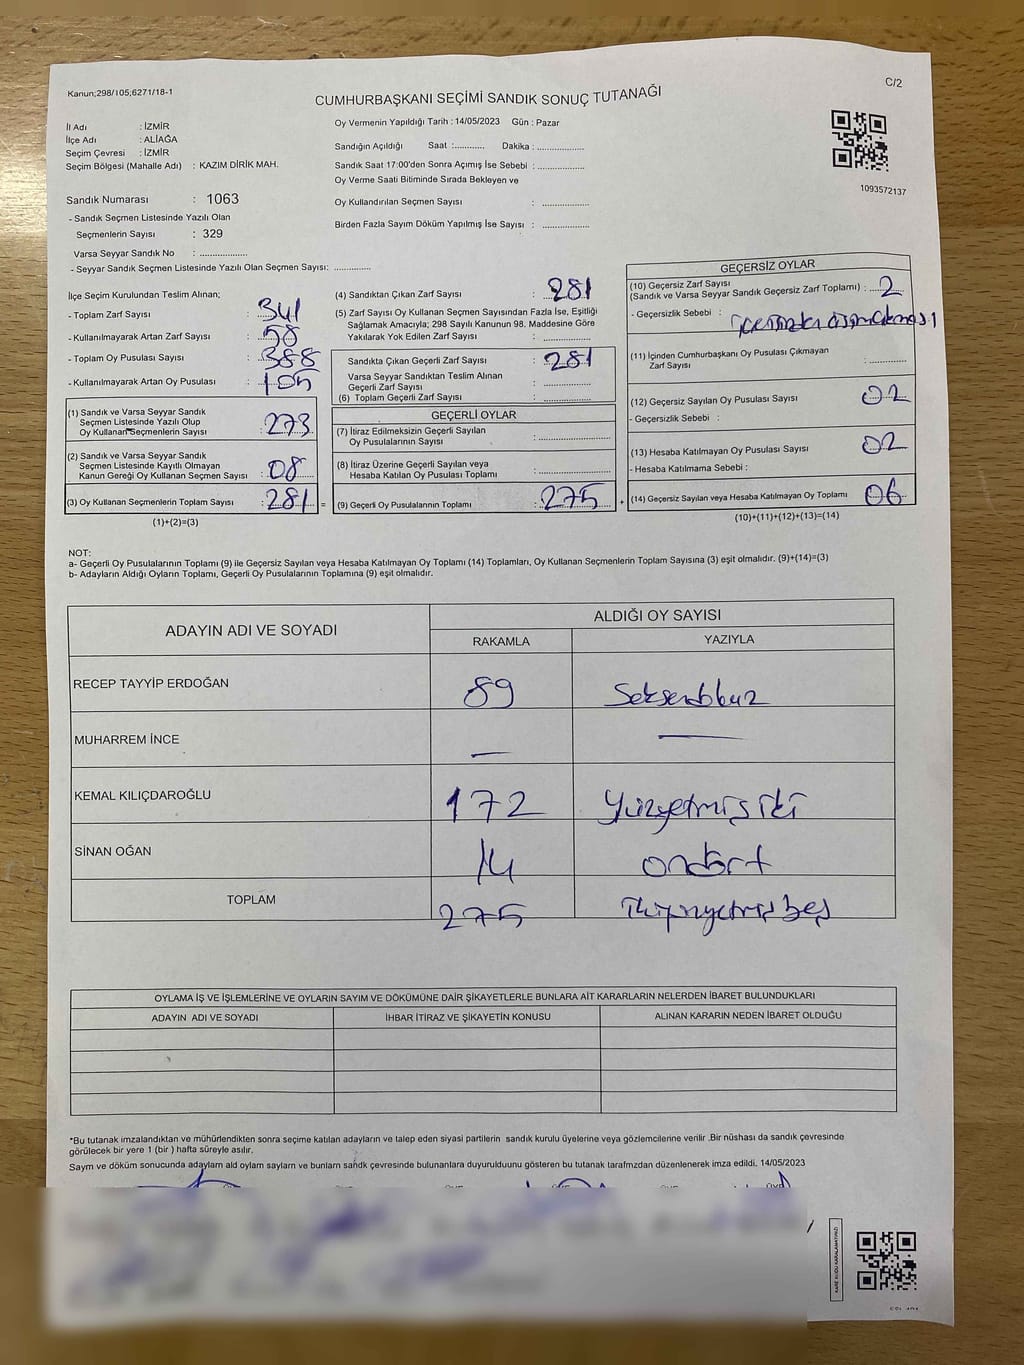 Kanun;298/105;6271/18-1
C/2
CUMHURBAŞKANI SEÇİMİ SANDIK SONUÇ TUTANAĞI
İl Adı : İZMİR
İlçe Adı : ALİAĞA
Seçim Çevresi : İZMİR
Seçim Bölgesi (Mahalle Adı) : KAZIM DİRİK MAH.
Oy Vermenin Yapıldığı Tarih : 14/05/2023 Gün : Pazar
Sandığın Açıldığı Saat :........... Dakika : ................
Sandık Saat 17:00'den Sonra Açımış İse Sebebi : ................
Oy Verme Saati Bitiminde Sırada Bekleyen ve
Oy Kullandırılan Seçmen Sayısı : ................
Birden Fazla Sayım Döküm Yapılmış İse Sayısı : ................
1093572137
Sandık Numarası : 1063
- Sandık Seçmen Listesinde Yazılı Olan
Seçmenlerin Sayısı : 329
Varsa Seyyar Sandık No : ................
- Seyyar Sandık Seçmen Listesinde Yazılı Olan Seçmen Sayısı: .............
İlçe Seçim Kurulundan Teslim Alınan;
- Toplam Zarf Sayısı : 341
- Kullanılmayarak Artan Zarf Sayısı : 58
- Toplam Oy Pusulası Sayısı : 388
- Kullanılmayarak Artan Oy Pusulası : 105
(1) Sandık ve Varsa Seyyar Sandık
Seçmen Listesinde Yazılı Olup
Oy Kullanan Seçmenlerin Sayısı : 273
(2) Sandık ve Varsa Seyyar Sandık
Seçmen Listesinde Kayıtlı Olmayan
Kanun Gereği Oy Kullanan Seçmen Sayısı : 08
(3) Oy Kullanan Seçmenlerin Toplam Sayısı : 281 =
(1)+(2)=(3)
(4) Sandıktan Çıkan Zarf Sayısı : 281
(5) Zarf Sayısı Oy Kullanan Seçmen Sayısından Fazla İse, Eşitliği
Sağlamak Amacıyla; 298 Sayılı Kanunun 98. Maddesine Göre
Yakılarak Yok Edilen Zarf Sayısı : ................
Sandıkta Çıkan Geçerli Zarf Sayısı : 281
Varsa Seyyar Sandıktan Teslim Alınan
Geçerli Zarf Sayısı : ................
(6) Toplam Geçerli Zarf Sayısı : ................
GEÇERLİ OYLAR
(7) İtiraz Edilmeksizin Geçerli Sayılan
Oy Pusulalarının Sayısı : ................
(8) İtiraz Üzerine Geçerli Sayılan veya
Hesaba Katılan Oy Pusulası Toplamı : ................
(9) Geçerli Oy Pusulalarının Toplamı : 275 +
GEÇERSİZ OYLAR
(10) Geçersiz Zarf Sayısı
(Sandık ve Varsa Seyyar Sandık Geçersiz Zarf Toplamı) : 2
- Geçersizlik Sebebi :
(11) İçinden Cumhurbaşkanı Oy Pusulası Çıkmayan
Zarf Sayısı : ................
(12) Geçersiz Sayılan Oy Pusulası Sayısı : 02
- Geçersizlik Sebebi :
(13) Hesaba Katılmayan Oy Pusulası Sayısı : 02
- Hesaba Katılmama Sebebi :
(14) Geçersiz Sayılan veya Hesaba Katılmayan Oy Toplamı : 06
(10)+(11)+(12)+(13)=(14)
NOT:
a- Geçerli Oy Pusulalarının Toplamı (9) ile Geçersiz Sayılan veya Hesaba Katılmayan Oy Toplamı (14) Toplamları, Oy Kullanan Seçmenlerin Toplam Sayısına (3) eşit olmalıdır. (9)+(14)=(3)
b- Adayların Aldığı Oyların Toplamı, Geçerli Oy Pusulalarının Toplamına (9) eşit olmalıdır.
ADAYIN ADI VE SOYADI
ALDIĞI OY SAYISI
RAKAMLA YAZIYLA
RECEP TAYYİP ERDOĞAN 89 Seksendokuz
MUHARREM İNCE — —
KEMAL KILIÇDAROĞLU 172 Yüzyetmişiki
SİNAN OĞAN 14 ondört
TOPLAM 275 İkiyüzyetmişbeş
OYLAMA İŞ VE İŞLEMLERİNE VE OYLARIN SAYIM VE DÖKÜMÜNE DAİR ŞİKAYETLERLE BUNLARA AİT KARARLARIN NELERDEN İBARET BULUNDUKLARI
ADAYIN ADI VE SOYADI İHBAR İTİRAZ VE ŞİKAYETİN KONUSU ALINAN KARARIN NEDEN İBARET OLDUĞU
*Bu tutanak imzalandıktan ve mühürlendikten sonra seçime katılan adayların ve talep eden siyasi partilerin sandık kurulu üyelerine veya gözlemcilerine verilir .Bir nüshası da sandık çevresinde
görülecek bir yere 1 (bir ) hafta süreyle asılır.
Sayım ve döküm sonucunda adayların ald oyların sayların ve bunların sandk çevresinde bulunanlara duyurulduunu gösteren bu tutanak tarafmzdan düzenlenerek imza edildi. 14/05/2023
KARE KODU KARALAMAYINIZ!